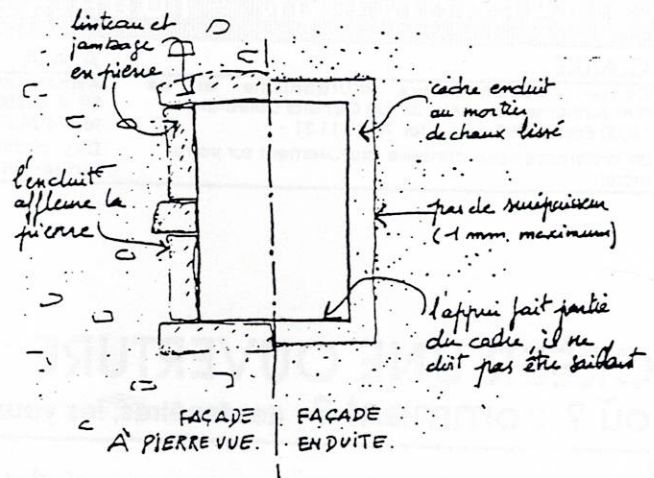 linteau et
jambage
en pierre
l'enduit
affleure la
pierre
cadre enduit
au mortier
de chaux lissé
pas de surépaisseur
(-1 mm. maximum)
l'appui fait partie
du cadre, il ne
doit pas être saillant
FAÇADE
À PIERRE VUE.
FAÇADE
ENDUITE.